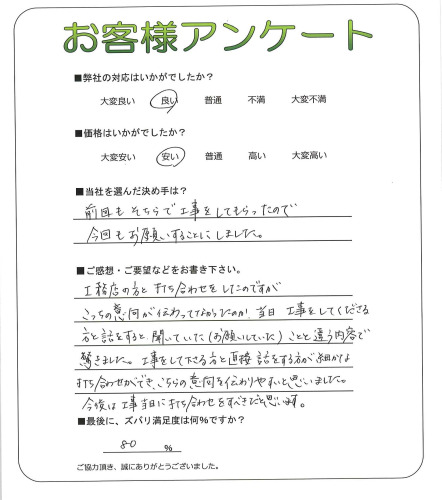 お客様アンケート
■弊社の対応はいかがでしたか?
大変良い 良い 普通 不満 大変不満
■価格はいかがでしたか?
大変安い 安い 普通 高い 大変高い
■当社を選んだ決め手は?
前回もそちらで工事をしてもらったので
今回もお願いすることにしました。
■ご感想・ご要望などをお書き下さい。
工務店の方と打ち合わせをしたのですが
こっちの意向が伝わってなかったのか、当日工事をしてくださる
方と話をすると、聞いていた(お願いしていた)ことと違う内容で
驚きました。工事をして下さる方と直接話をする方が細かな
打ち合わせができ、こちらの意向を伝わりやすいと思いました。
今後は工事当日に打ち合わせをすべきだと思います。
■最後に、ズバリ満足度は何%ですか?
80 %
ご協力頂き、誠にありがとうございました。